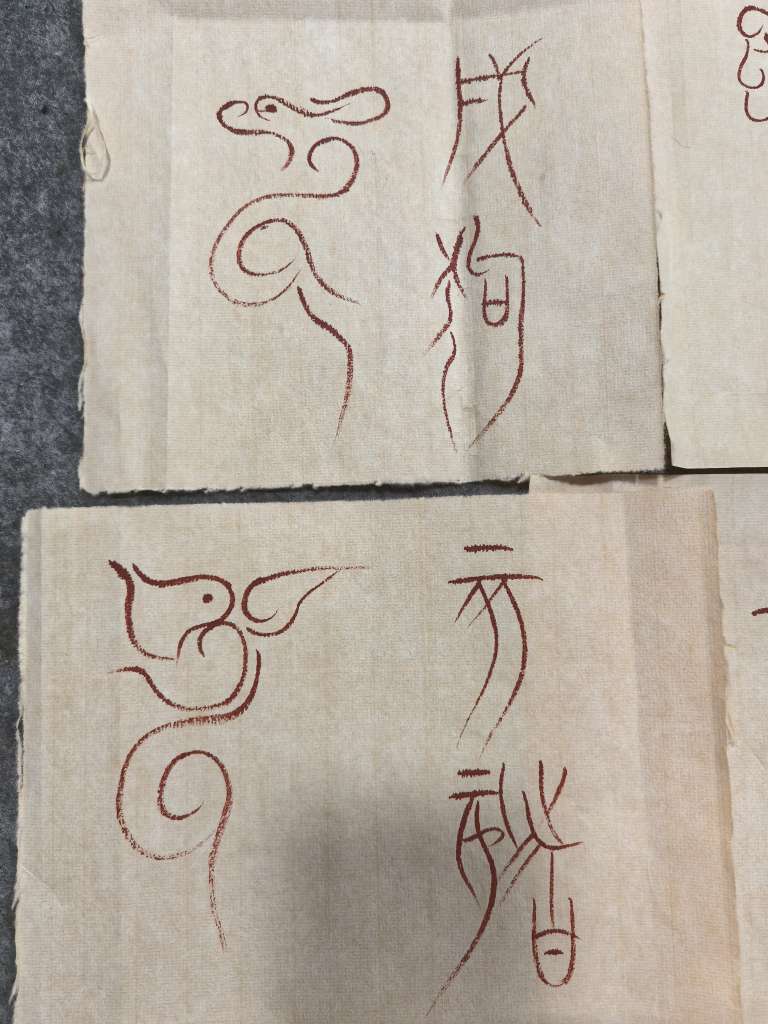 戌
狗
亥
豬